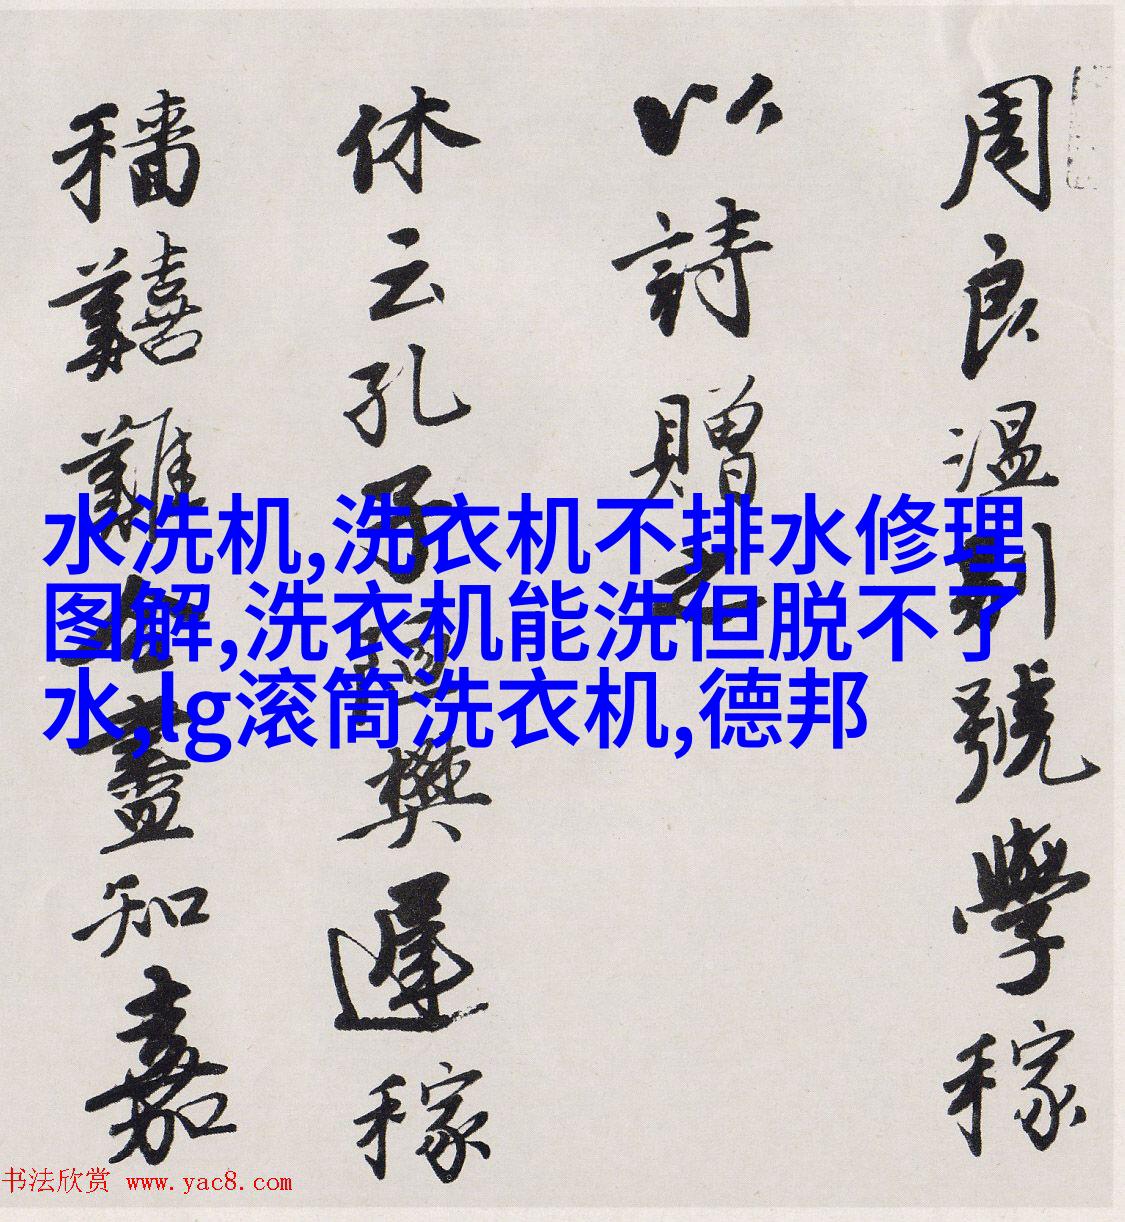 水洗机,洗衣机不排水修理
图解,洗衣机能洗但脱不了
水,lg滚筒洗衣机,德邦
周良溫別號學稼
以詩贈之
休云孔子樊遲稼
穡囏難盡知嘉
书法欣赏 www.yac8.com